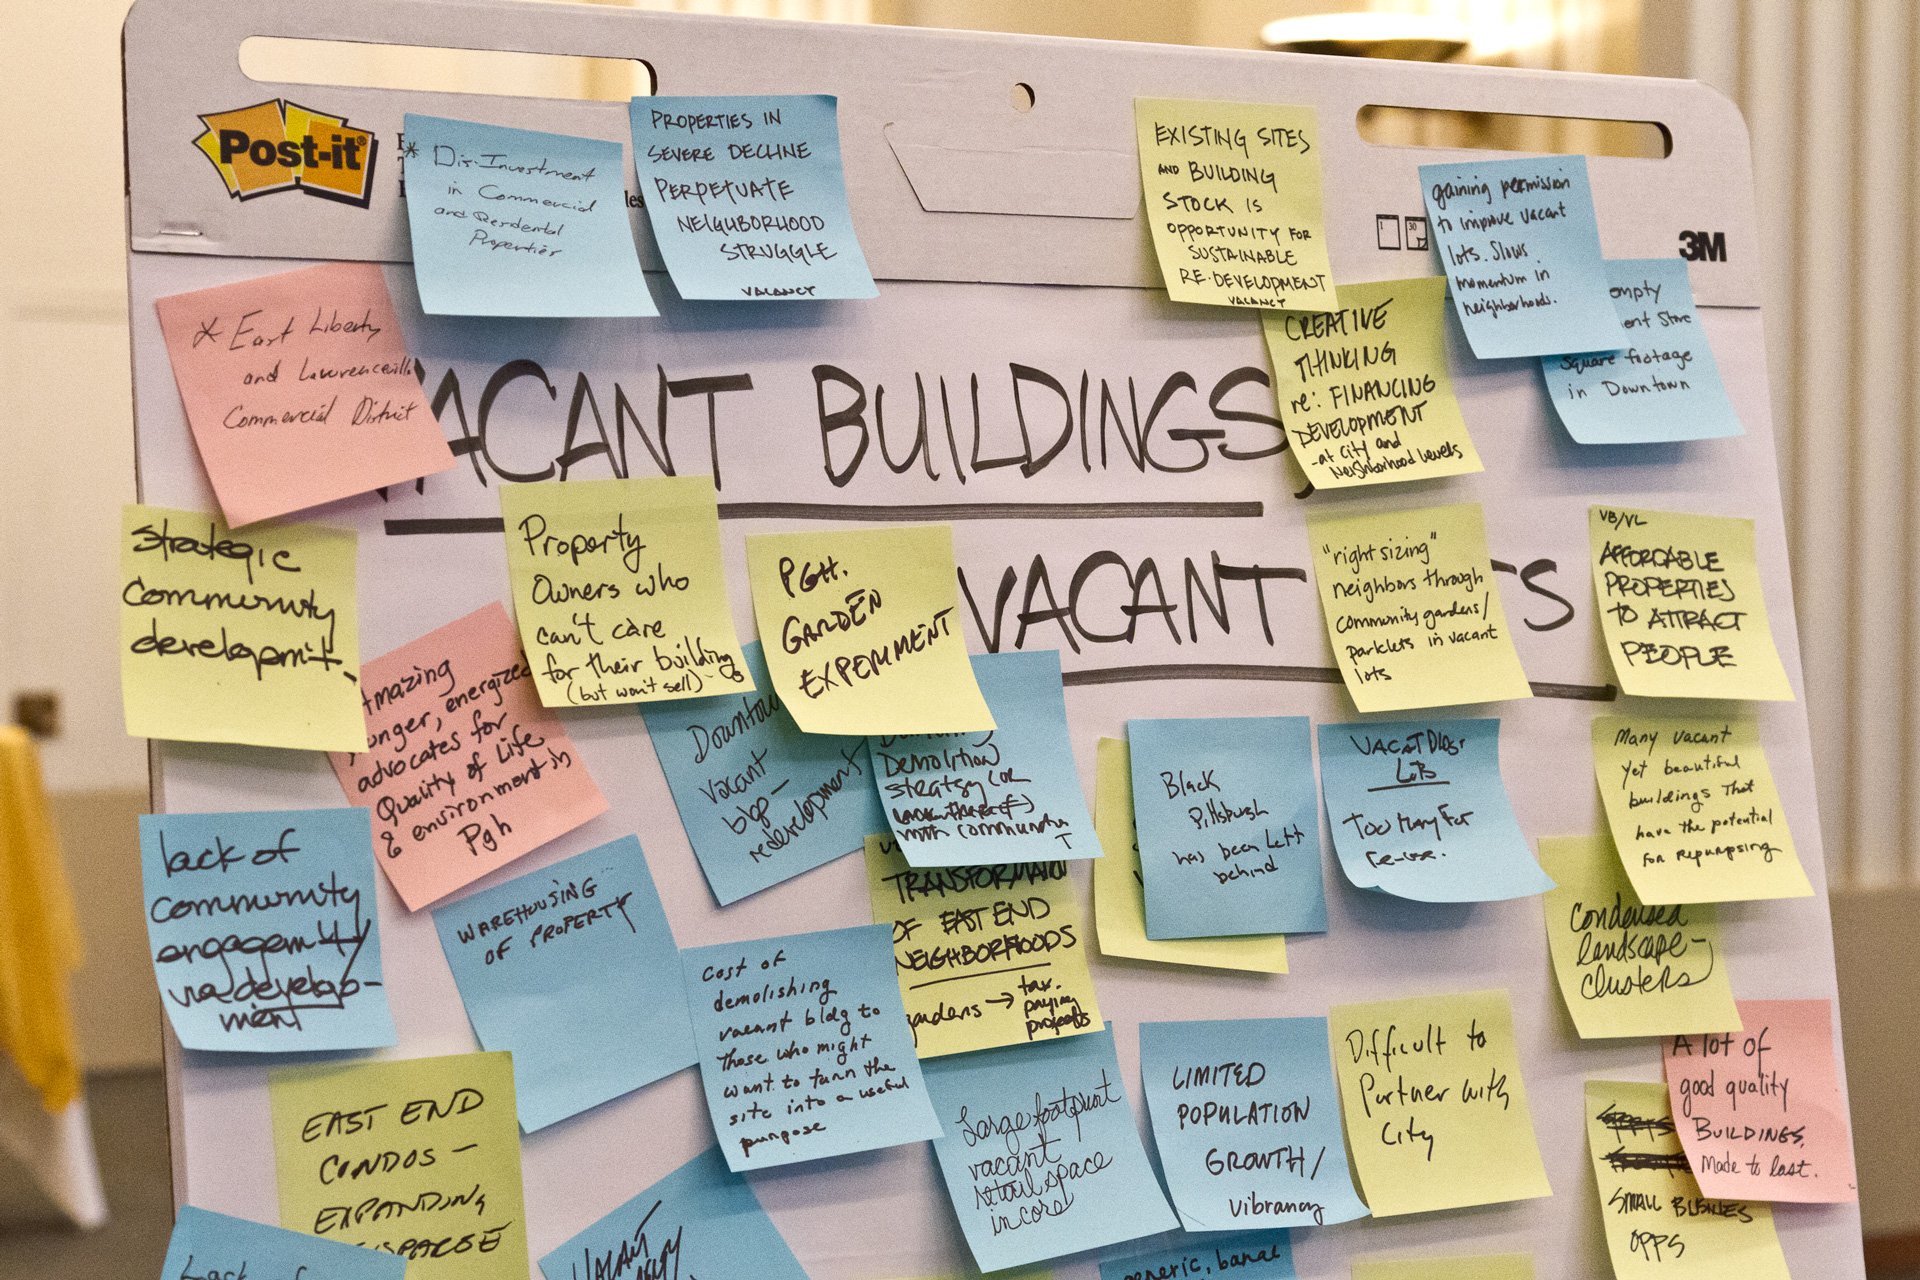 Post-it®
3M
* Dis-Investment
in Commercial
and Residential
Properties
PROPERTIES IN
SEVERE DECLINE
PERPETUATE
NEIGHBORHOOD
STRUGGLE
VACANCY
EXISTING SITES
AND BUILDING
STOCK IS
OPPORTUNITY FOR
SUSTAINABLE
RE-DEVELOPMENT
VACANCY
gaining permission
to improve vacant
lots. Slows
momentum in
neighborhoods.
empty
ent Store
Square footage
in Downtown
* East Liberty
and Lawrenceville
Commercial District
VACANT BUILDINGS,
VACANT
TS
CREATIVE
THINKING
re: FINANCING
DEVELOPMENT
-at City and
Neighborhood Levels
Strategic
Community
development
Property
Owners who
can't care
for their building
(but won't sell)
PGH.
GARDEN
EXPERIMENT
"right sizing"
neighbors through
community gardens/
parklets in vacant
lots
VB/VL
AFFORDABLE
PROPERTIES
TO ATTRACT
PEOPLE
Amazing
younger, energized
advocates for
Quality of Life
& environment in
Pgh
Downtown
vacant
bldg-
redevelopment
Demolition
strategy (or
lack thereof)
with community
Black
Pittsburgh
has been left
behind
VACANT BLDG.
LOTS
TOO MANY FOR
re-use.
Many vacant
yet beautiful
buildings That
have the potential
for repurposing
lack of
community
engagement/
via develop-
ment
WAREHOUSING
OF PROPERTY
TRANSFORMATION
OF EAST END
NEIGHBORHOODS
gardens → tax.
paying
projects
Condensed
landscape-
clusters
Cost of
demolishing
vacant bldg to
those who might
want to turn the
site into a useful
purpose
Large footprint
vacant
retail space
in core
LIMITED
POPULATION
GROWTH/
vibrancy
Difficult to
Partner with
City
A lot of
good quality
BUILDINGS,
Made to last.
SMALL BUSINESS
OPPS
EAST END
CONDOS -
EXPANDING
Lack of
VACANT
generic, banal